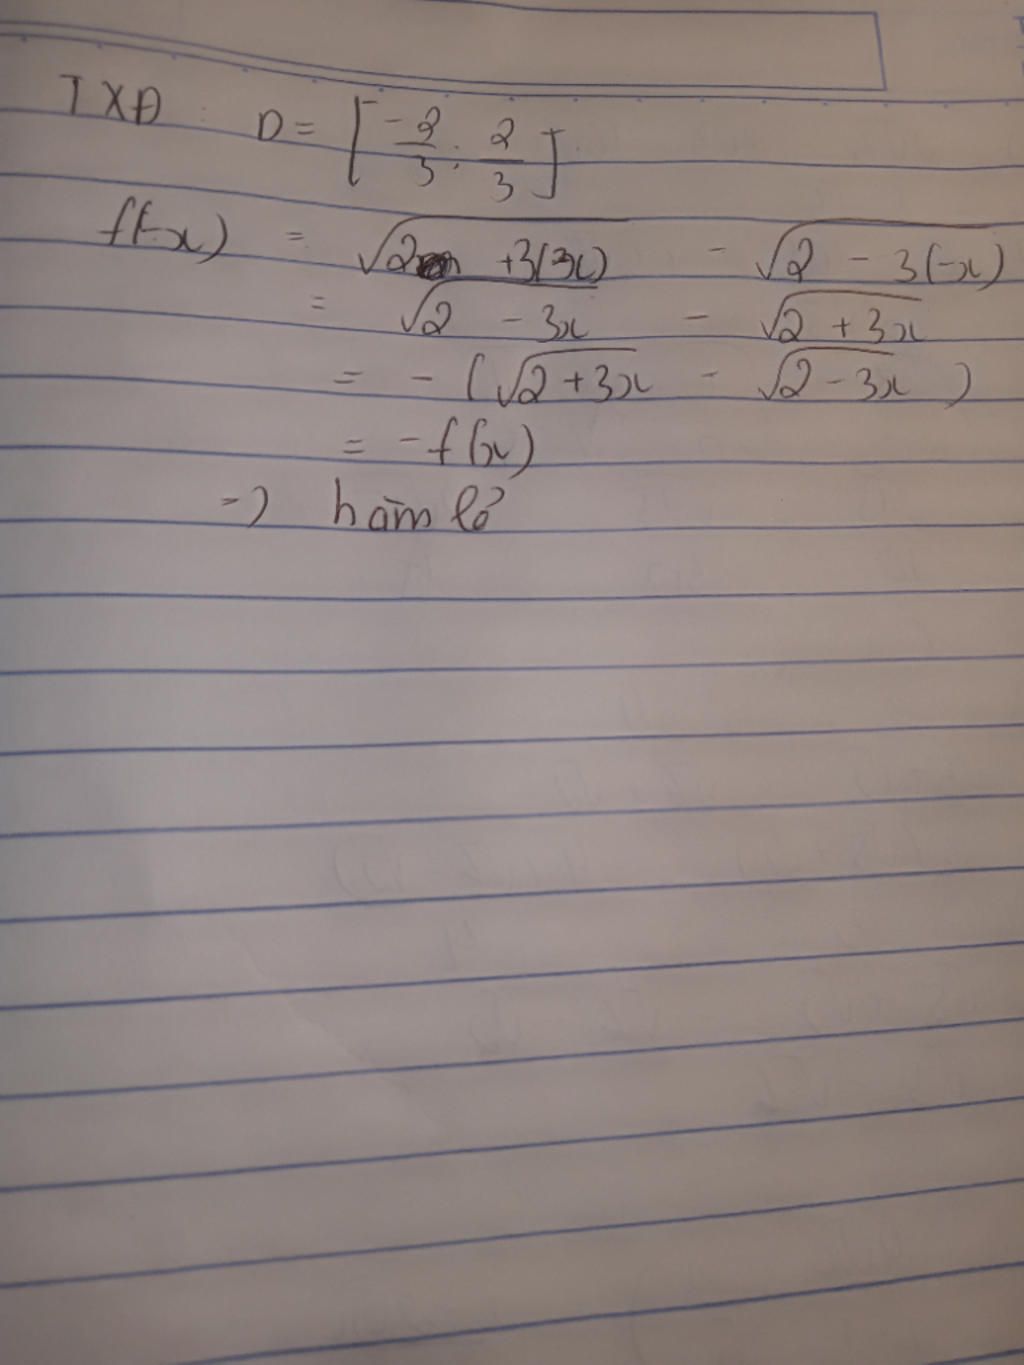 TXĐ : D = [-2/3 ; 2/3]
f(-x) = √(2 +3(-x)) - √(2 - 3(-x))
= √(2 - 3x) - √(2 + 3x)
= - (√(2+3x) - √(2-3x))
= -f(x)
=) hàm lẻ